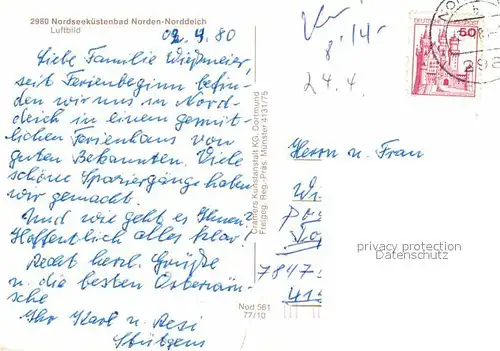 2980 Nordseeküstenbad Norden-Norddeich
Luftbild
02.4.80
Liebe Familie Wießmeier,
seit Ferienbeginn befin-
den wir uns in Nord-
deich in einem gemüt-
lichen Ferienhaus von
guten Bekannten. Viele
schöne Spaziergänge haben
wir gemacht.
Und wie geht es Ihnen?
Hoffentlich alles klar!
Recht herzl. Grüße
u. die besten Osterwün-
sche
Ihr Karl u. Resi
Stüttgens
Cramers Kunstanstalt KG, Dortmund
Freigeg. Reg.-Präs. Münster 4131/75
Nod 561
77/10
8,14
24.4.
DEUTSCHE BUNDESPOST
60
298
Herrn u. Frau
privacy protection
Datenschutz
7847
413